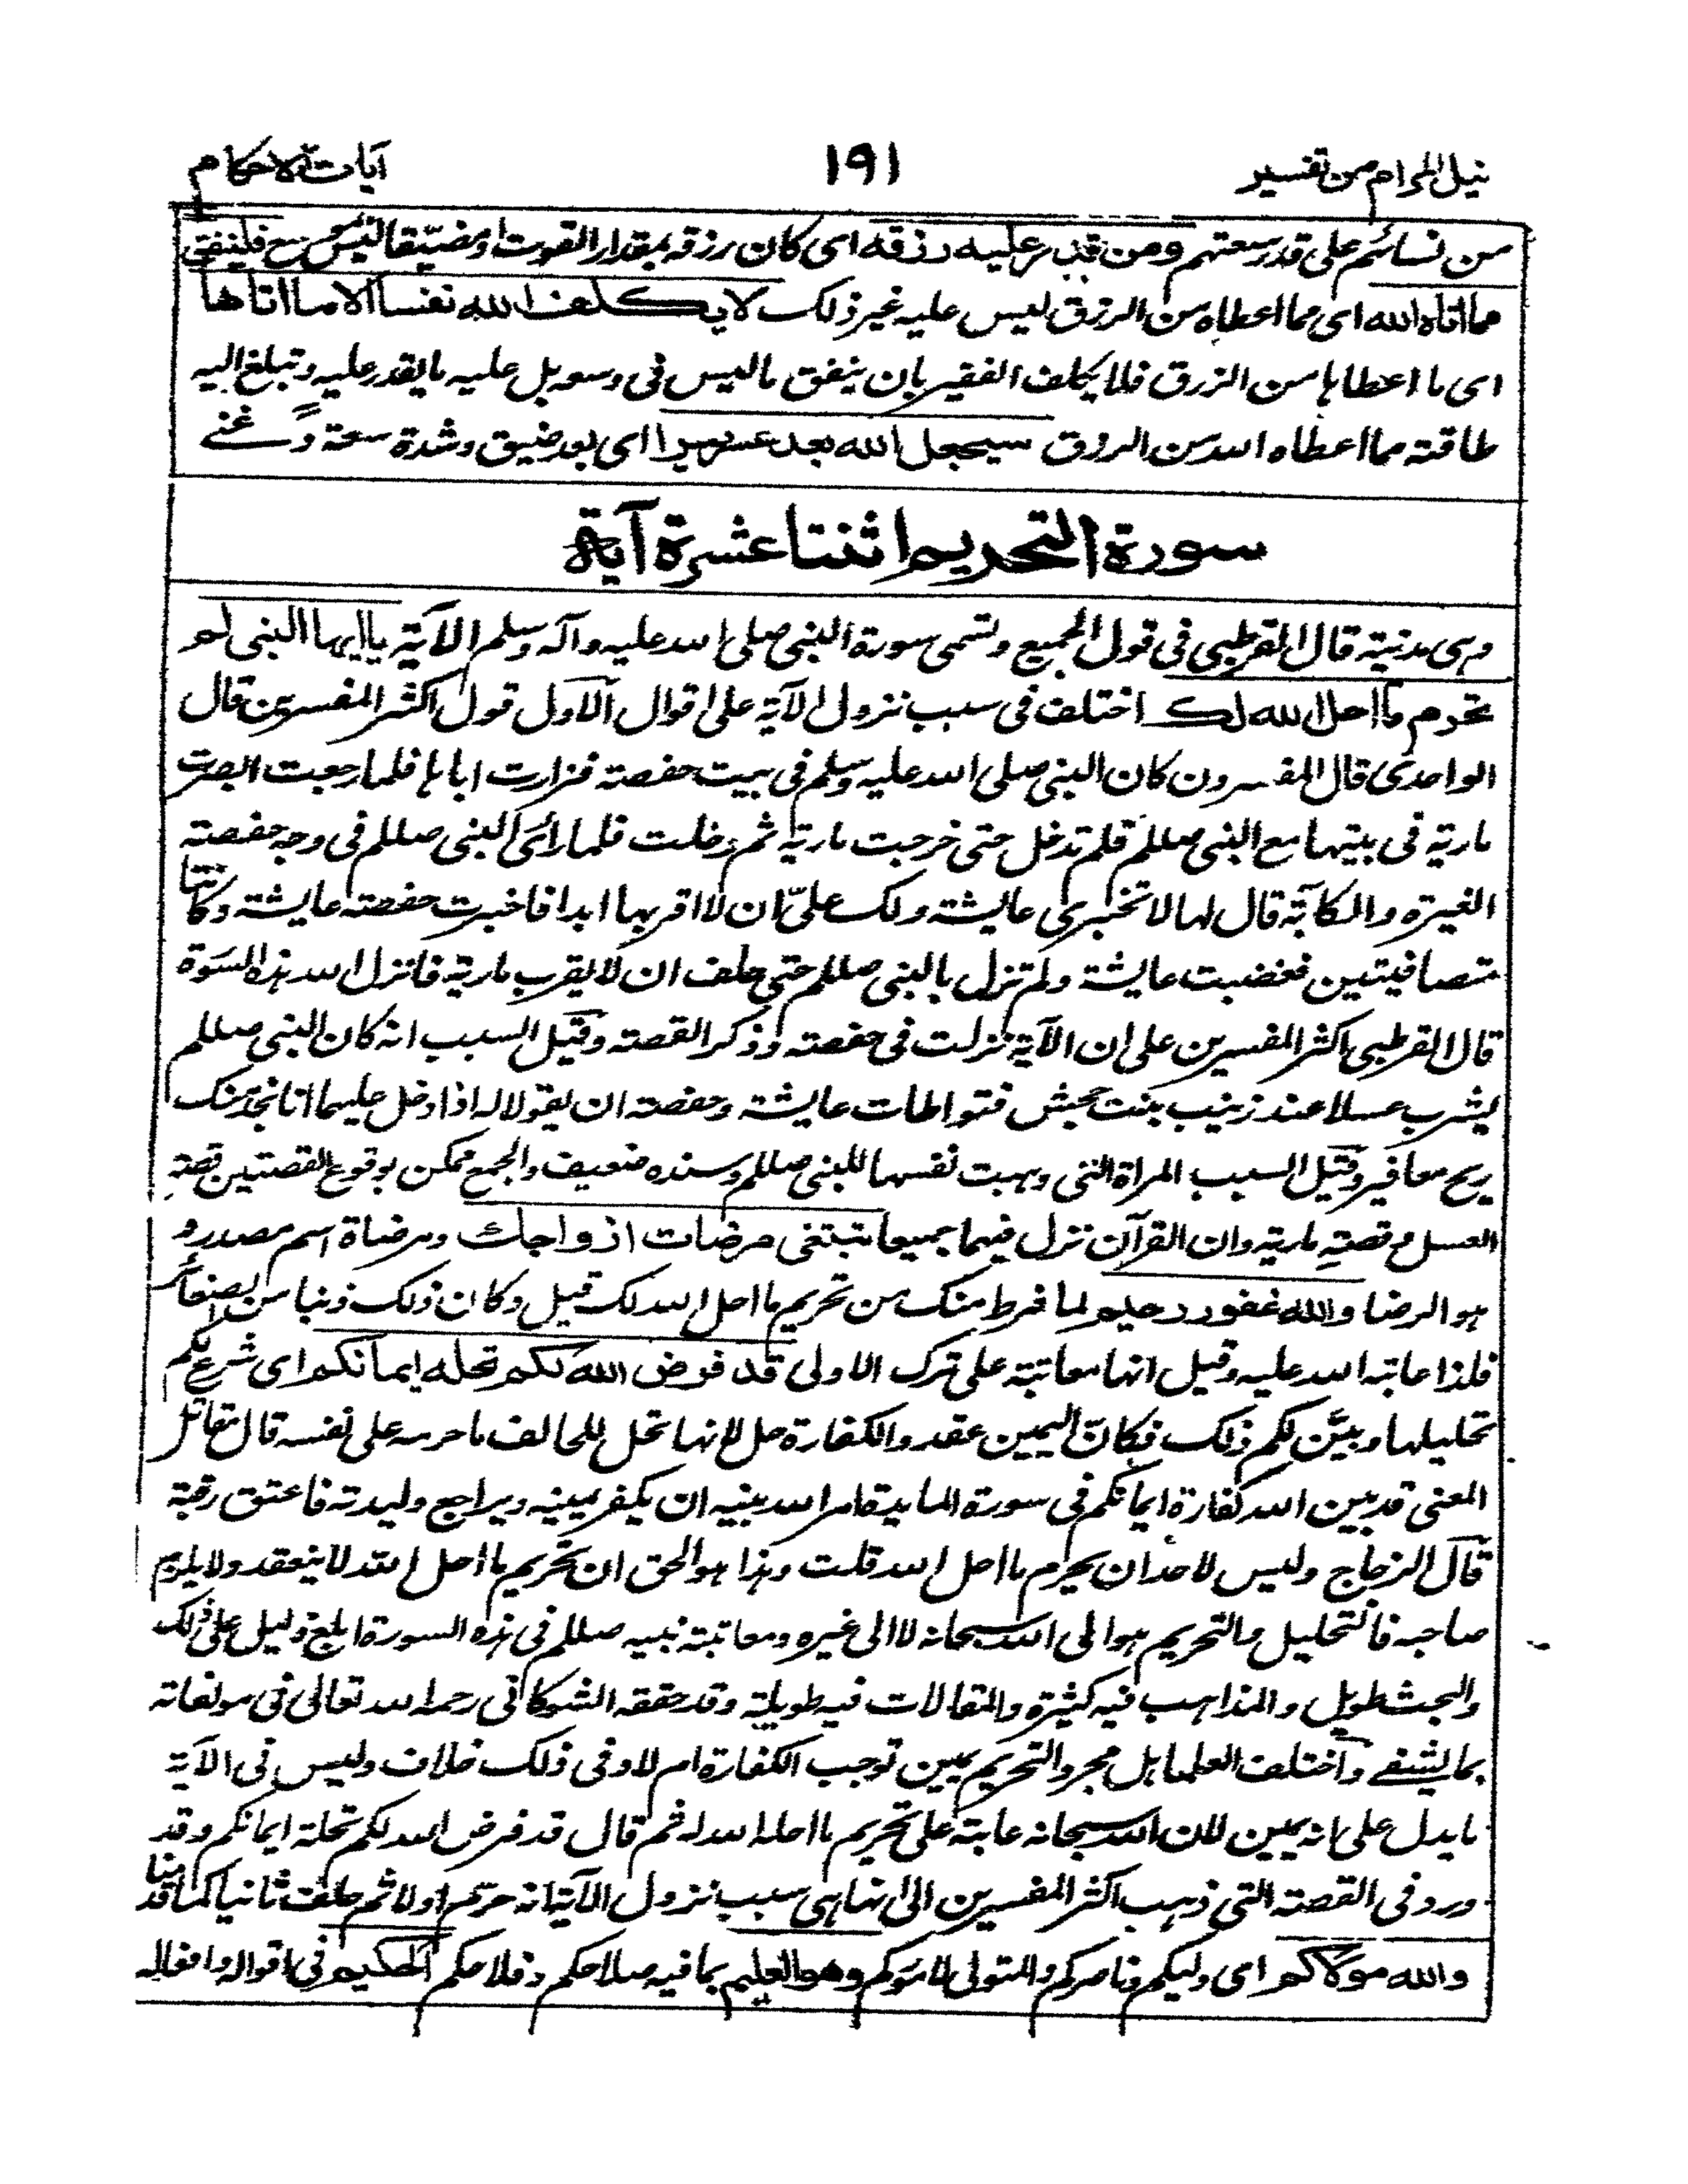 نيل المرام من تفسير
١٩١
آيات الاحكام
من نسائهم على قدر سعتهم ومن قدر عليه رزقه اى كان رزقه بمقدار القوت او مضيقا ليس بموسع فلينفق
مما اتاه الله اى مما اعطاه من الرزق ليس عليه غير ذلك لا يكلف الله نفسا الا ما اتاها
اى ما اعطاها من الرزق فلا يكلف الفقير بان ينفق ما ليس فى وسعه بل عليه ما يقدر عليه وتبلغ اليه
طاقته مما اعطاه الله من الرزق سيجعل الله بعد عسر يسرا اى بعد ضيق وشدة سعة وغنى
سورة التحريم اثنتا عشرة آية
وهى مدنية قال القرطبى فى قول الجميع وتسمى سورة النبى صلى الله عليه وآله وسلم الآية يا ايها النبى لم
تحرم ما احل الله لك اختلف فى سبب نزول الآية على اقوال الاول قول اكثر المفسرين قال
الواحدى قال المفسرون كان النبى صلى الله عليه وسلم فى بيت حفصة فزارت اباها فلما رجعت ابصرت
مارية فى بيتها مع النبى صللم فلم تدخل حتى خرجت مارية ثم دخلت فلما رأى النبى صللم فى وجه حفصة
الغيرة والكآبة قال لها لا تخبرى عايشة ولك علىّ ان لا اقربها ابدا فاخبرت حفصة عايشة وكانتا
متصافيتين فغضبت عايشة ولم تزل بالنبى صللم حتى حلف ان لا يقرب مارية فانزل الله هذه السورة
قال القرطبى اكثر المفسرين على ان الآية نزلت فى حفصة وذكر القصة وقيل السبب انه كان النبى صللم
يشرب عسلا عند زينب بنت جحش فتواطات عايشة وحفصة ان يقولا له اذا دخل عليهما انا نجد منك
ريح مغافير وقيل السبب المراة التى وهبت نفسها للنبى صللم وسنده ضعيف والجمع ممكن بوقوع القصتين قصة
العسل مع قصة مارية وان القرآن نزل فيهما جميعا تبتغى مرضات ازواجك ومرضاة اسم مصدر و
هو الرضا والله غفور رحيم لما فرط منك من تحريم ما احل الله لك قيل وكان ذلك ذنبا من الصغائر
فلذا عاتبه الله عليه وقيل انها معاتبة على ترك الاولى قد فرض الله لكم تحلة ايمانكم اى شرع لكم
تحليلها وبيَّن لكم ذلك فكانّ اليمين عقد والكفارة حل لانها تحل للحالف ما حرمه على نفسه قال مقاتل
المعنى قد بين الله كفارة ايمانكم فى سورة المايدة امر الله نبيه ان يكفر يمينه ويراجع وليدته فاعتق رقبة
قال الزجاج وليس لاحد ان يحرم ما احل الله قلت وهذا هو الحق ان تحريم ما احل الله لا ينعقد ولا يلزم
صاحبه فالتحليل والتحريم هو الى الله سبحانه لا الى غيره ومعاتبته نبيه صللم فى هذه السورة ابلغ دليل على ذلك
والبحث طويل والمذاهب فيه كثيرة والمقالات فيه طويلة وقد حققه الشوكانى رحمه الله تعالى فى مولفاته
بما يشفى واختلف العلما هل مجرد التحريم يمين توجب الكفارة ام لا وفى ذلك خلاف وليس فى الآية
ما يدل على انه يمين لان الله سبحانه عاتبه على تحريم ما احله الله له ثم قال قد فرض الله لكم تحلة ايمانكم وقد
ورد فى القصة التى ذهب اكثر المفسرين الى انها هى سبب نزول الآية انه حرّم اولا ثم حلف ثانيا كما قدمنا
والله مولاكم اى وليكم وناصركم والمتولى لاموركم وهو العليم بما فيه صلاحكم وفلاحكم الحكيم فى اقواله وافعاله